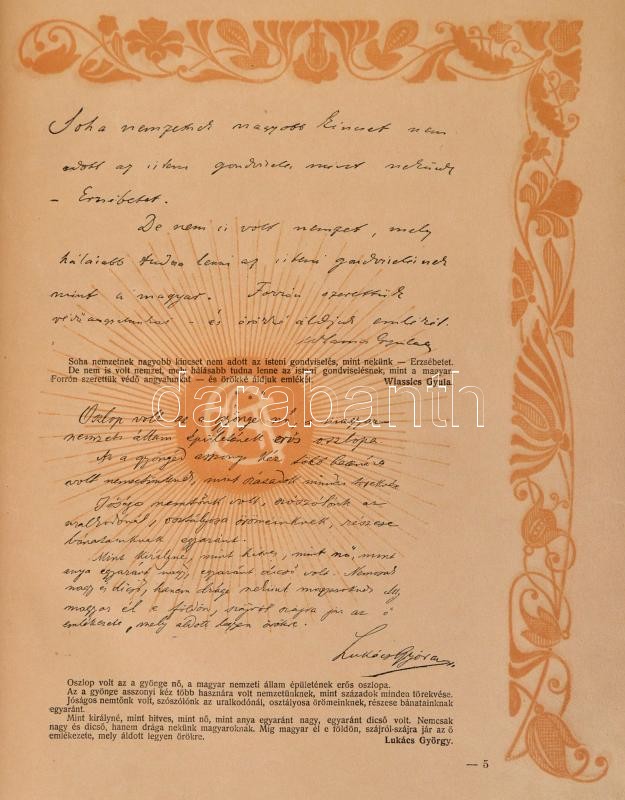 Soha nemzetnek nagyobb kincset nem
adott az isteni gondviselés, mint nekünk
– Erzsébetet.
De nem is volt nemzet, mely
hálásabb tudna lenni az isteni gondviselésnek
mint a magyar. Forrón szerettük
védőangyalunkat – és örökké áldjuk emlékét.
Wlassics Gyula
Soha nemzetnek nagyobb kincset nem adott az isteni gondviselés, mint nekünk — Erzsébetet.
De nem is volt nemzet, mely hálásabb tudna lenni az isteni gondviselésnek, mint a magyar
Forrón szerettük védő angyalunkat — és örökké áldjuk emlékét.
Wlassics Gyula
darabanth
Oszlop volt az a gyönge nő, a magyar
nemzeti állam épületének erős oszlopa.
Az a gyönge asszonyi kéz több hasznára
volt nemzetünknek, mint századok minden törekvése.
Jóságos nemtőnk volt, szószólónk az
uralkodónál, osztályosa örömeinknek, részese
bánatainknak egyaránt.
Mint királyné, mint hitves, mint nő, mint
anya egyaránt nagy, egyaránt dicső volt. Nemcsak
nagy és dicső, hanem drága nekünk magyaroknak. Míg
magyar él e földön, szájról szájra jár az ő
emlékezete, mely áldott legyen örökre.
Lukács György
Oszlop volt az a gyönge nő, a magyar nemzeti állam épületének erős oszlopa.
Az a gyönge asszonyi kéz több hasznára volt nemzetünknek, mint századok minden törekvése.
Jóságos nemtőnk volt, szószólónk az uralkodónál, osztályosa örömeinknek, részese bánatainknak
egyaránt.
Mint királyné, mint hitves, mint nő, mint anya egyaránt nagy, egyaránt dicső volt. Nemcsak
nagy és dicső, hanem drága nekünk magyaroknak. Míg magyar él e földön, szájról-szájra jár az ő
emlékezete, mely áldott legyen örökre.
Lukács György.
— 5